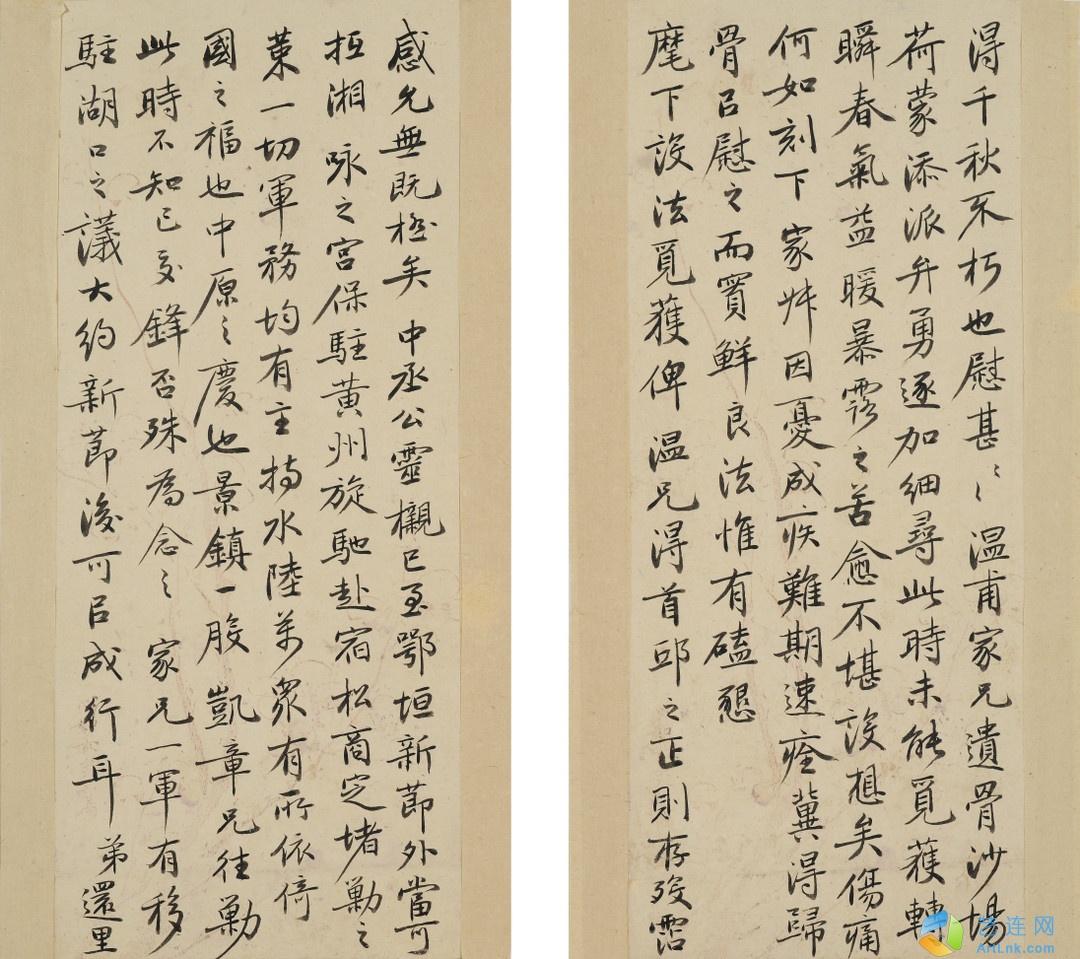 得千秋不朽也慰甚〻温甫家兄遺骨沙場
荷蒙添派弁勇逐加細尋此時未能覓獲轉
瞬春氣益暖暴露之苦愈不堪設想矣傷痛
何如刻下家叔因憂成疾難期速痊冀得歸
骨㠯慰之而實鮮良法惟有磕懇
麾下設法覓獲俾温兄得首邱之正則存歿霑
感允無既極矣中丞公靈櫬已至鄂垣新莭外當可
抵湘咏之宮保駐黃州旋馳赴宿松商定堵勦之
策一切軍務均有主持水陸萬衆有所依倚
國之福也中原之慶也景鎮一股凱章兄往勦
此時不知已交鋒否殊為念〻家兄一軍有移
駐湖口之議大約新莭後可㠯成行耳弟還里
连网
ArtLnk.com